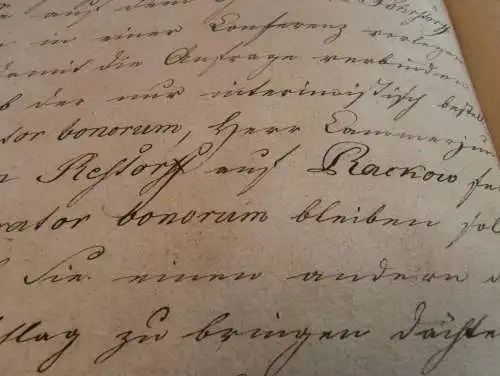 auf dem
in einer Conferenz verlegen
damit die Anfrage verbinden
ob der nur interimistisch bestel
tor bonorum, Herr Cammerjun
n Restorff auf Rackow fe
rator bonorum bleiben sol
Sie einen andern
hlag zu bringen dächte